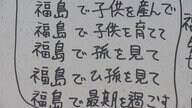 福島で子供を産んで
福島で子供を育てて
福島で孫を見て
福島でひ孫を見て
福島で最期を過ごす